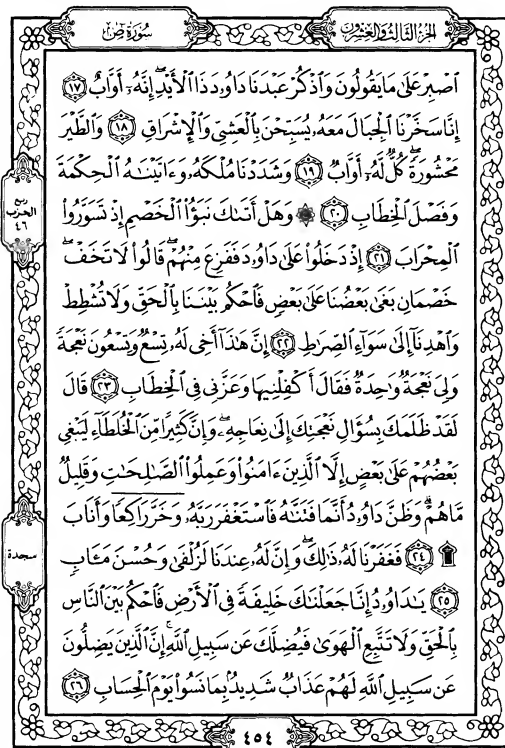 سُورَةُ صٓ
الجُزْءُ الثَّالِثُ وَالعِشْرُونَ
ٱصۡبِرۡ عَلَىٰ مَا يَقُولُونَ وَٱذۡكُرۡ عَبۡدَنَا دَاوُۥدَ ذَا ٱلۡأَيۡدِۖ إِنَّهُۥٓ أَوَّابٌ ١٧
إِنَّا سَخَّرۡنَا ٱلۡجِبَالَ مَعَهُۥ يُسَبِّحۡنَ بِٱلۡعَشِيِّ وَٱلۡإِشۡرَاقِ ١٨ وَٱلطَّيۡرَ
مَحۡشُورَةٗۖ كُلّٞ لَّهُۥٓ أَوَّابٞ ١٩ وَشَدَدۡنَا مُلۡكَهُۥ وَءَاتَيۡنَٰهُ ٱلۡحِكۡمَةَ
وَفَصۡلَ ٱلۡخِطَابِ ٢٠ ۞ وَهَلۡ أَتَىٰكَ نَبَؤُاْ ٱلۡخَصۡمِ إِذۡ تَسَوَّرُواْ
ٱلۡمِحۡرَابَ ٢١ إِذۡ دَخَلُواْ عَلَىٰ دَاوُۥدَ فَفَزِعَ مِنۡهُمۡۖ قَالُواْ لَا تَخَفۡۖ
خَصۡمَانِ بَغَىٰ بَعۡضُنَا عَلَىٰ بَعۡضٖ فَٱحۡكُم بَيۡنَنَا بِٱلۡحَقِّ وَلَا تُشۡطِطۡ
وَٱهۡدِنَآ إِلَىٰ سَوَآءِ ٱلصِّرَٰطِ ٢٢ إِنَّ هَٰذَآ أَخِي لَهُۥ تِسۡعٞ وَتِسۡعُونَ نَعۡجَةٗ
وَلِيَ نَعۡجَةٞ وَٰحِدَةٞ فَقَالَ أَكۡفِلۡنِيهَا وَعَزَّنِي فِي ٱلۡخِطَابِ ٢٣ قَالَ
لَقَدۡ ظَلَمَكَ بِسُؤَالِ نَعۡجَتِكَ إِلَىٰ نِعَاجِهِۦۖ وَإِنَّ كَثِيرٗا مِّنَ ٱلۡخُلَطَآءِ لَيَبۡغِي
بَعۡضُهُمۡ عَلَىٰ بَعۡضٍ إِلَّا ٱلَّذِينَ ءَامَنُواْ وَعَمِلُواْ ٱلصَّٰلِحَٰتِ وَقَلِيلٞ
مَّا هُمۡۗ وَظَنَّ دَاوُۥدُ أَنَّمَا فَتَنَّٰهُ فَٱسۡتَغۡفَرَ رَبَّهُۥ وَخَرَّۤ رَاكِعٗاۤ وَأَنَابَ
۩ ٢٤ فَغَفَرۡنَا لَهُۥ ذَٰلِكَۖ وَإِنَّ لَهُۥ عِندَنَا لَزُلۡفَىٰ وَحُسۡنَ مَـَٔابٖ
٢٥ يَٰدَاوُۥدُ إِنَّا جَعَلۡنَٰكَ خَلِيفَةٗ فِي ٱلۡأَرۡضِ فَٱحۡكُم بَيۡنَ ٱلنَّاسِ
بِٱلۡحَقِّ وَلَا تَتَّبِعِ ٱلۡهَوَىٰ فَيُضِلَّكَ عَن سَبِيلِ ٱللَّهِۚ إِنَّ ٱلَّذِينَ يَضِلُّونَ
عَن سَبِيلِ ٱللَّهِ لَهُمۡ عَذَابٞ شَدِيدُۢ بِمَا نَسُواْ يَوۡمَ ٱلۡحِسَابِ ٢٦
ربع
الحزب
٤٦
سجدة
٤٥٤